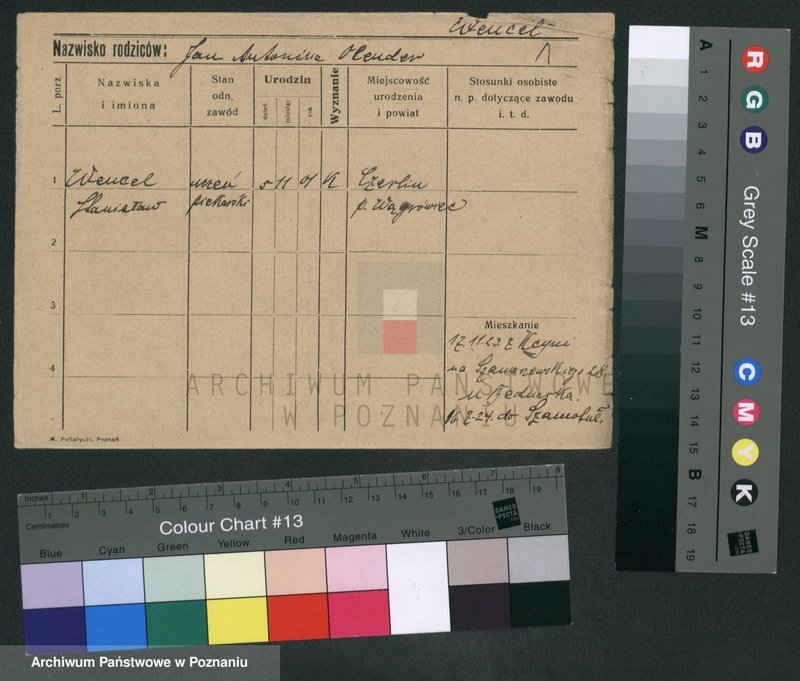 Wencel
Nazwisko rodziców: Jan Antonina Olender
L. porz.
Nazwiska
i imiona
Stan
odn.
zawód
Urodzin
dzień
miesiąc
rok
Wyznanie
Miejscowość
urodzenia
i powiat
Stosunki osobiste
n. p. dotyczące zawodu
i. t. d.
1 Wencel uczeń 5 11 01 K Czerlin
Stanisław piekarski p. Wągrówiec
2
3
4
Mieszkanie
17.11.23. z Kcyni
na 28
u Bednarka.
16.2.24. do Szamotuł.
ARCHIWUM PAŃSTWOWE
W POZNANIU
M. Putiatycki, Poznań
Inches 1 2 3 4 5 6 7 8
Centimetres 1 2 3 4 5 6 7 8 9 10 11 12 13 14 15 16 17 18 19
Colour Chart #13
DANES
-PICTA
.com
Blue Cyan Green Yellow Red Magenta White 3/Color Black
Grey Scale #13
R G B
C M Y K
A 1 2 3 4 5 6 M 8 9 10 11 12 13 14 15 B 17 18 19
DANES
-PICTA
.com
Archiwum Państwowe w Poznaniu